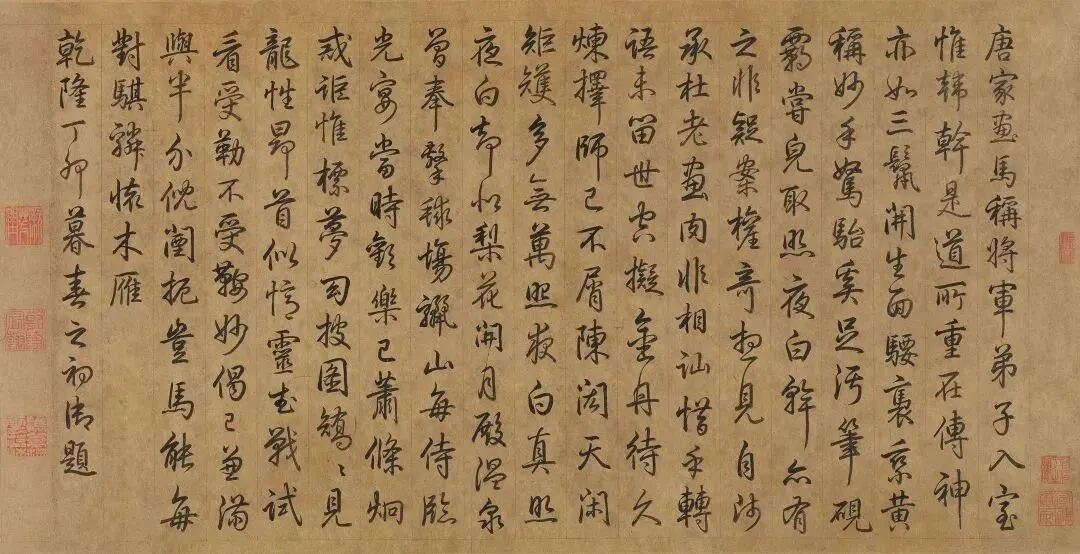 唐家畫馬稱將軍弟子入室
惟韓幹是道所重在傳神
亦如三鬣開生面騕褭乘黃
稱妙手駑駘奚足污筆硯
霸嘗皃取照夜白幹亦有
之非疑案權奇想見自沙
承杜老畫肉非相訕惜乎轉
語未留世空擬金丹待久
煉擇師已不屑陳閎天閑
矩矱多無萬照夜白真照
夜白却似梨花開月殿溫泉
曾奉擊毬場驪山每侍臨
光宴當時歡樂已蕭條炯
戒詎惟標夢披圖矯〻見
龍性昂首似憶靈武戰試
看受勒不受鞍妙偈已兼滿
與半分倪闉扼豈馬能每
對騏驎懷木雁
乾隆丁卯暮春之初御題